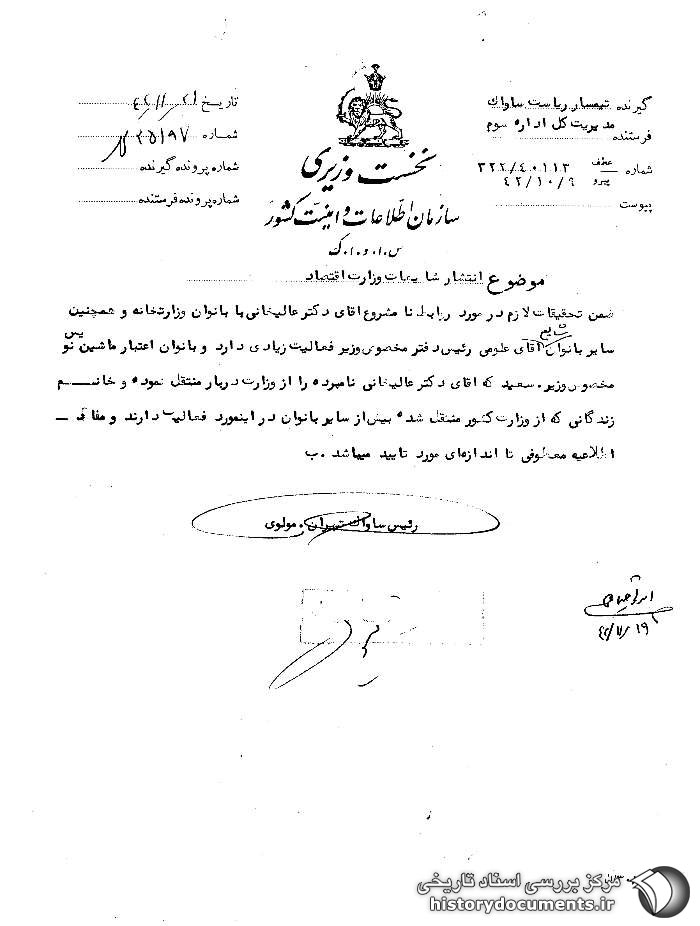 گیرنده تیمسار ریاست ساواک
مدیریت کل اداره سوم
فرستنده
شماره عطف ۳۲۲/۴۰۱۱۳
پیرو ۴۲/۱۰/۹
پیوست
تاریخ
شماره ۳۵۱۹۷
شماره پرونده گیرنده
شماره پرونده فرستنده
نخست وزیری
سازمان اطلاعات و امنیت کشور
س.ا.و.ا.ک
موضوع انتشار شایعات وزارت اقتصاد
ضمن تحقیقات لازم در مورد روابط نا مشروع اقای دکتر عالیخانی با بانوان وزارتخانه و همچنین
سایر بانوان آقای علومی رئیس دفتر مخصوص وزیر فعالیت زیادی دارد و بانوان اعتبار ماشین نویس
مخصوص وزیر. سعید که اقای دکتر عالیخانی نامبرده را از وزارت دربار منتقل نموده و خانم
زندگانی که از وزارت کشور منتقل شده بیش از سایر بانوان در اینمورد فعالیت دارند و مفاد
اطلاعیه معطوفی تا اندازه‌ای مورد تایید میباشد. ب
رئیس ساواک تهران. مولوی
مرکز بررسی اسناد تاریخی
historydocuments.ir